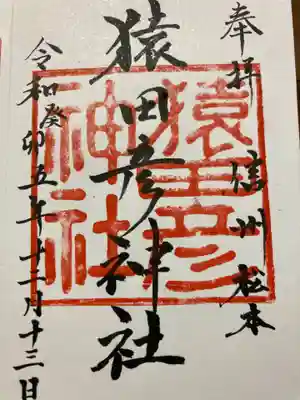 奉拝 信州松本
猿田彦神社
猿田彦
神社
令和癸卯五年十二月十三日